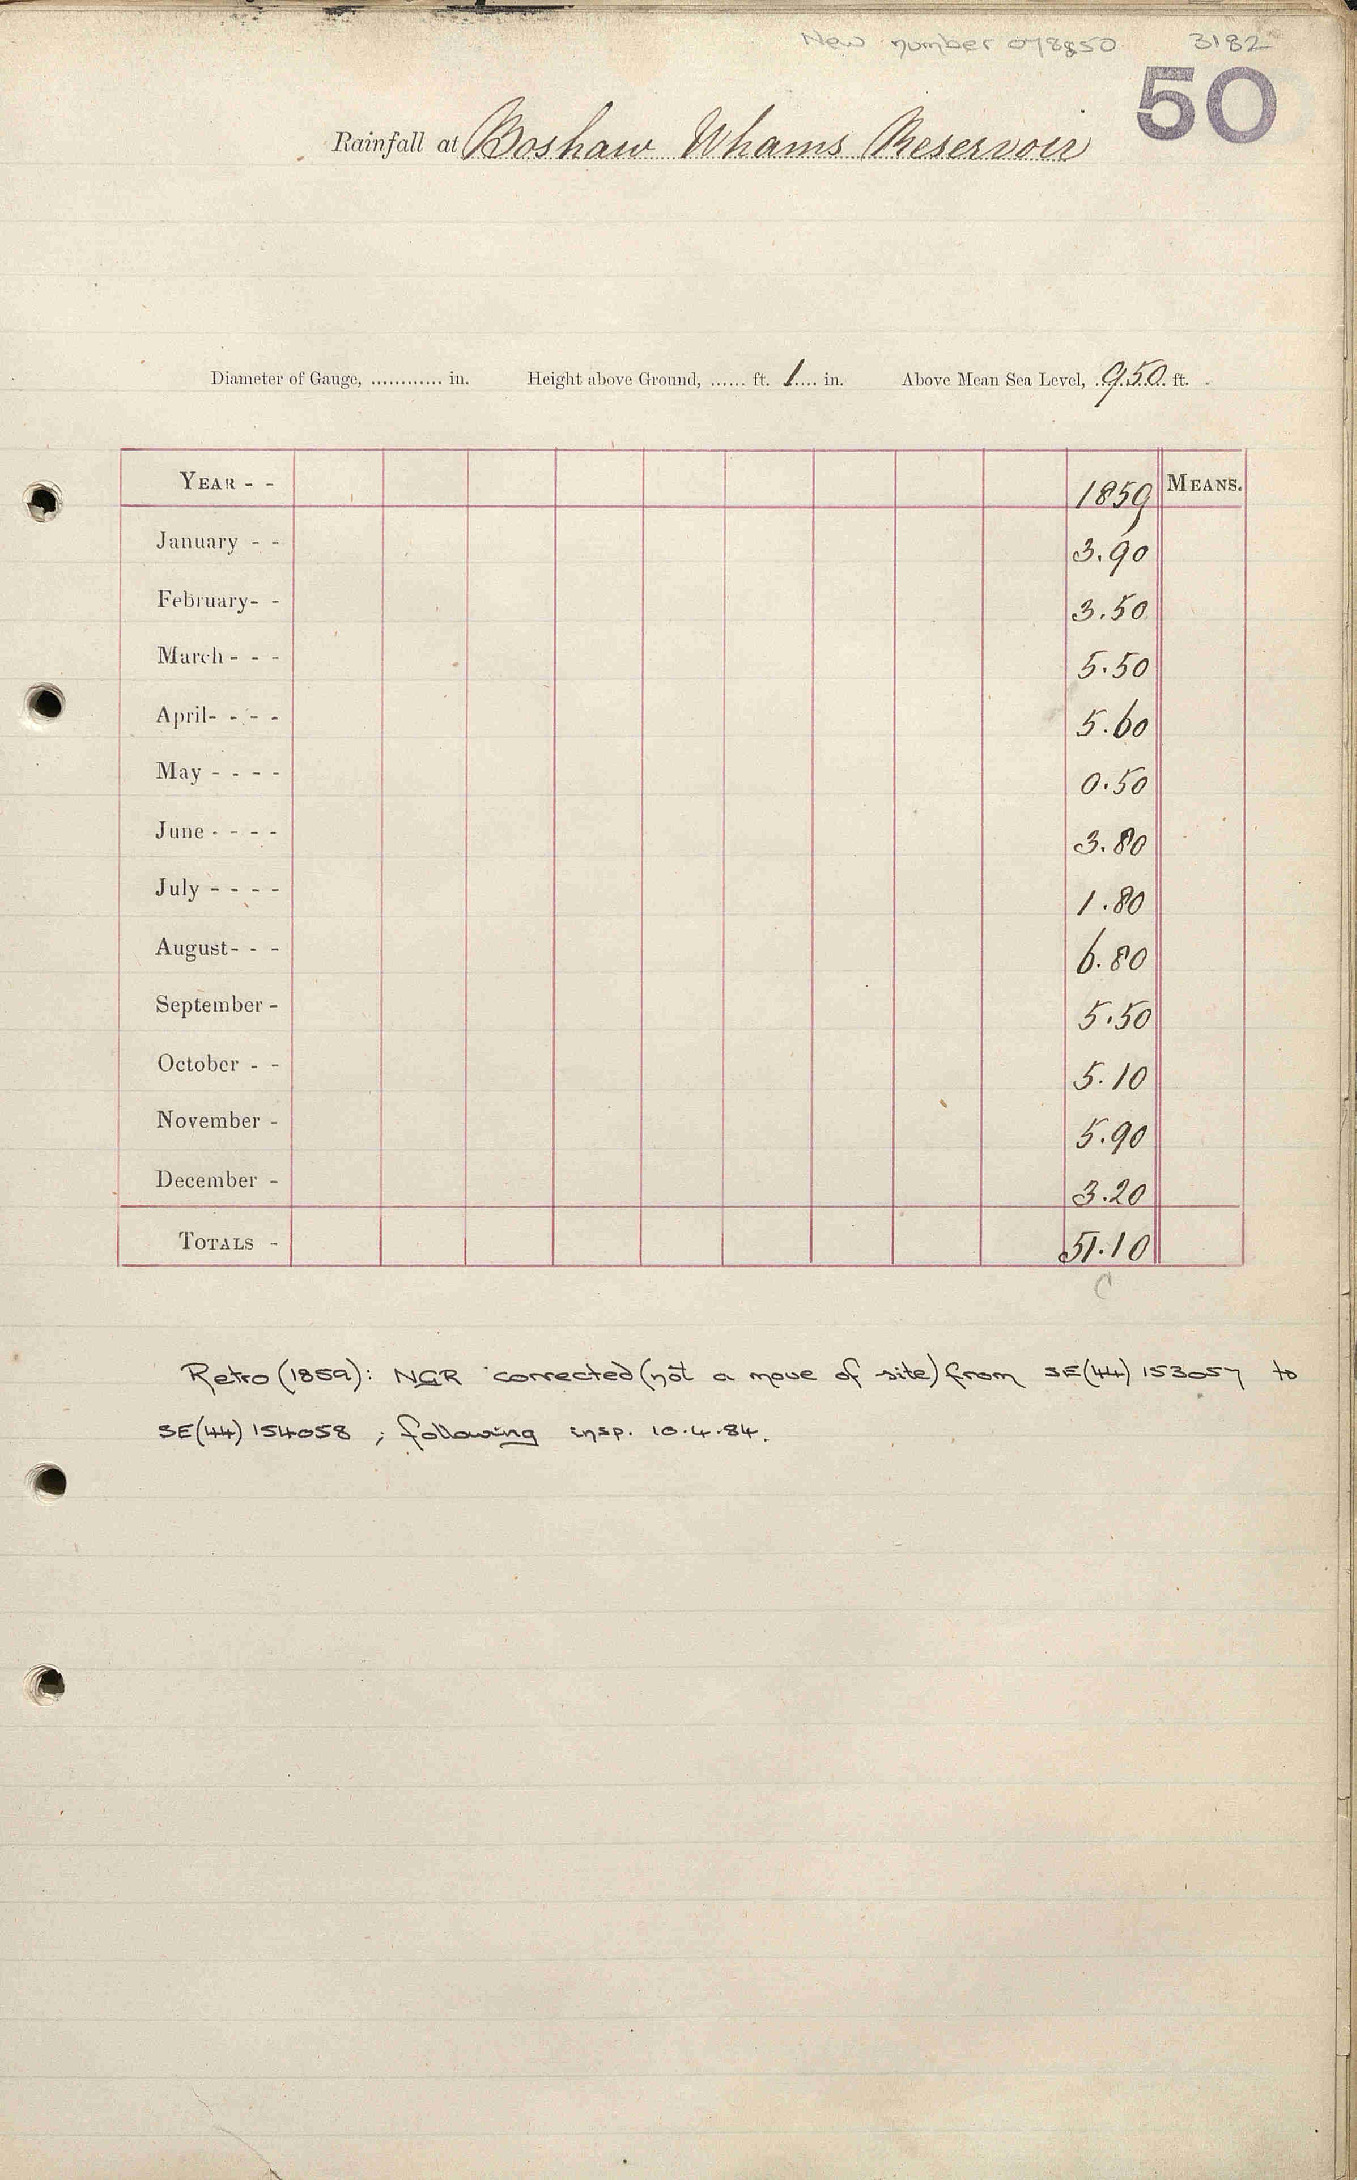 New number 078850 3182
50
Rainfall at Boshaw Whams Reservoir
Diameter of Gauge, ............ in. Height above Ground, ...... ft. 1.... in. Above Mean Sea Level, 950 ft.
YEAR - - 1859 MEANS.
January - - 3.90
February - - 3.50
March - - - 5.50
April - - - - 5.60
May - - - - 0.50
June - - - - 3.80
July - - - - 1.80
August - - - 6.80
September - 5.50
October - - 5.10
November - 5.90
December - 3.20
TOTALS - 51.10
C
Retro (1859): NGR corrected (not a move of site) from SE(44) 153057 to
SE(44) 154058 ; following insp. 10.4.84.